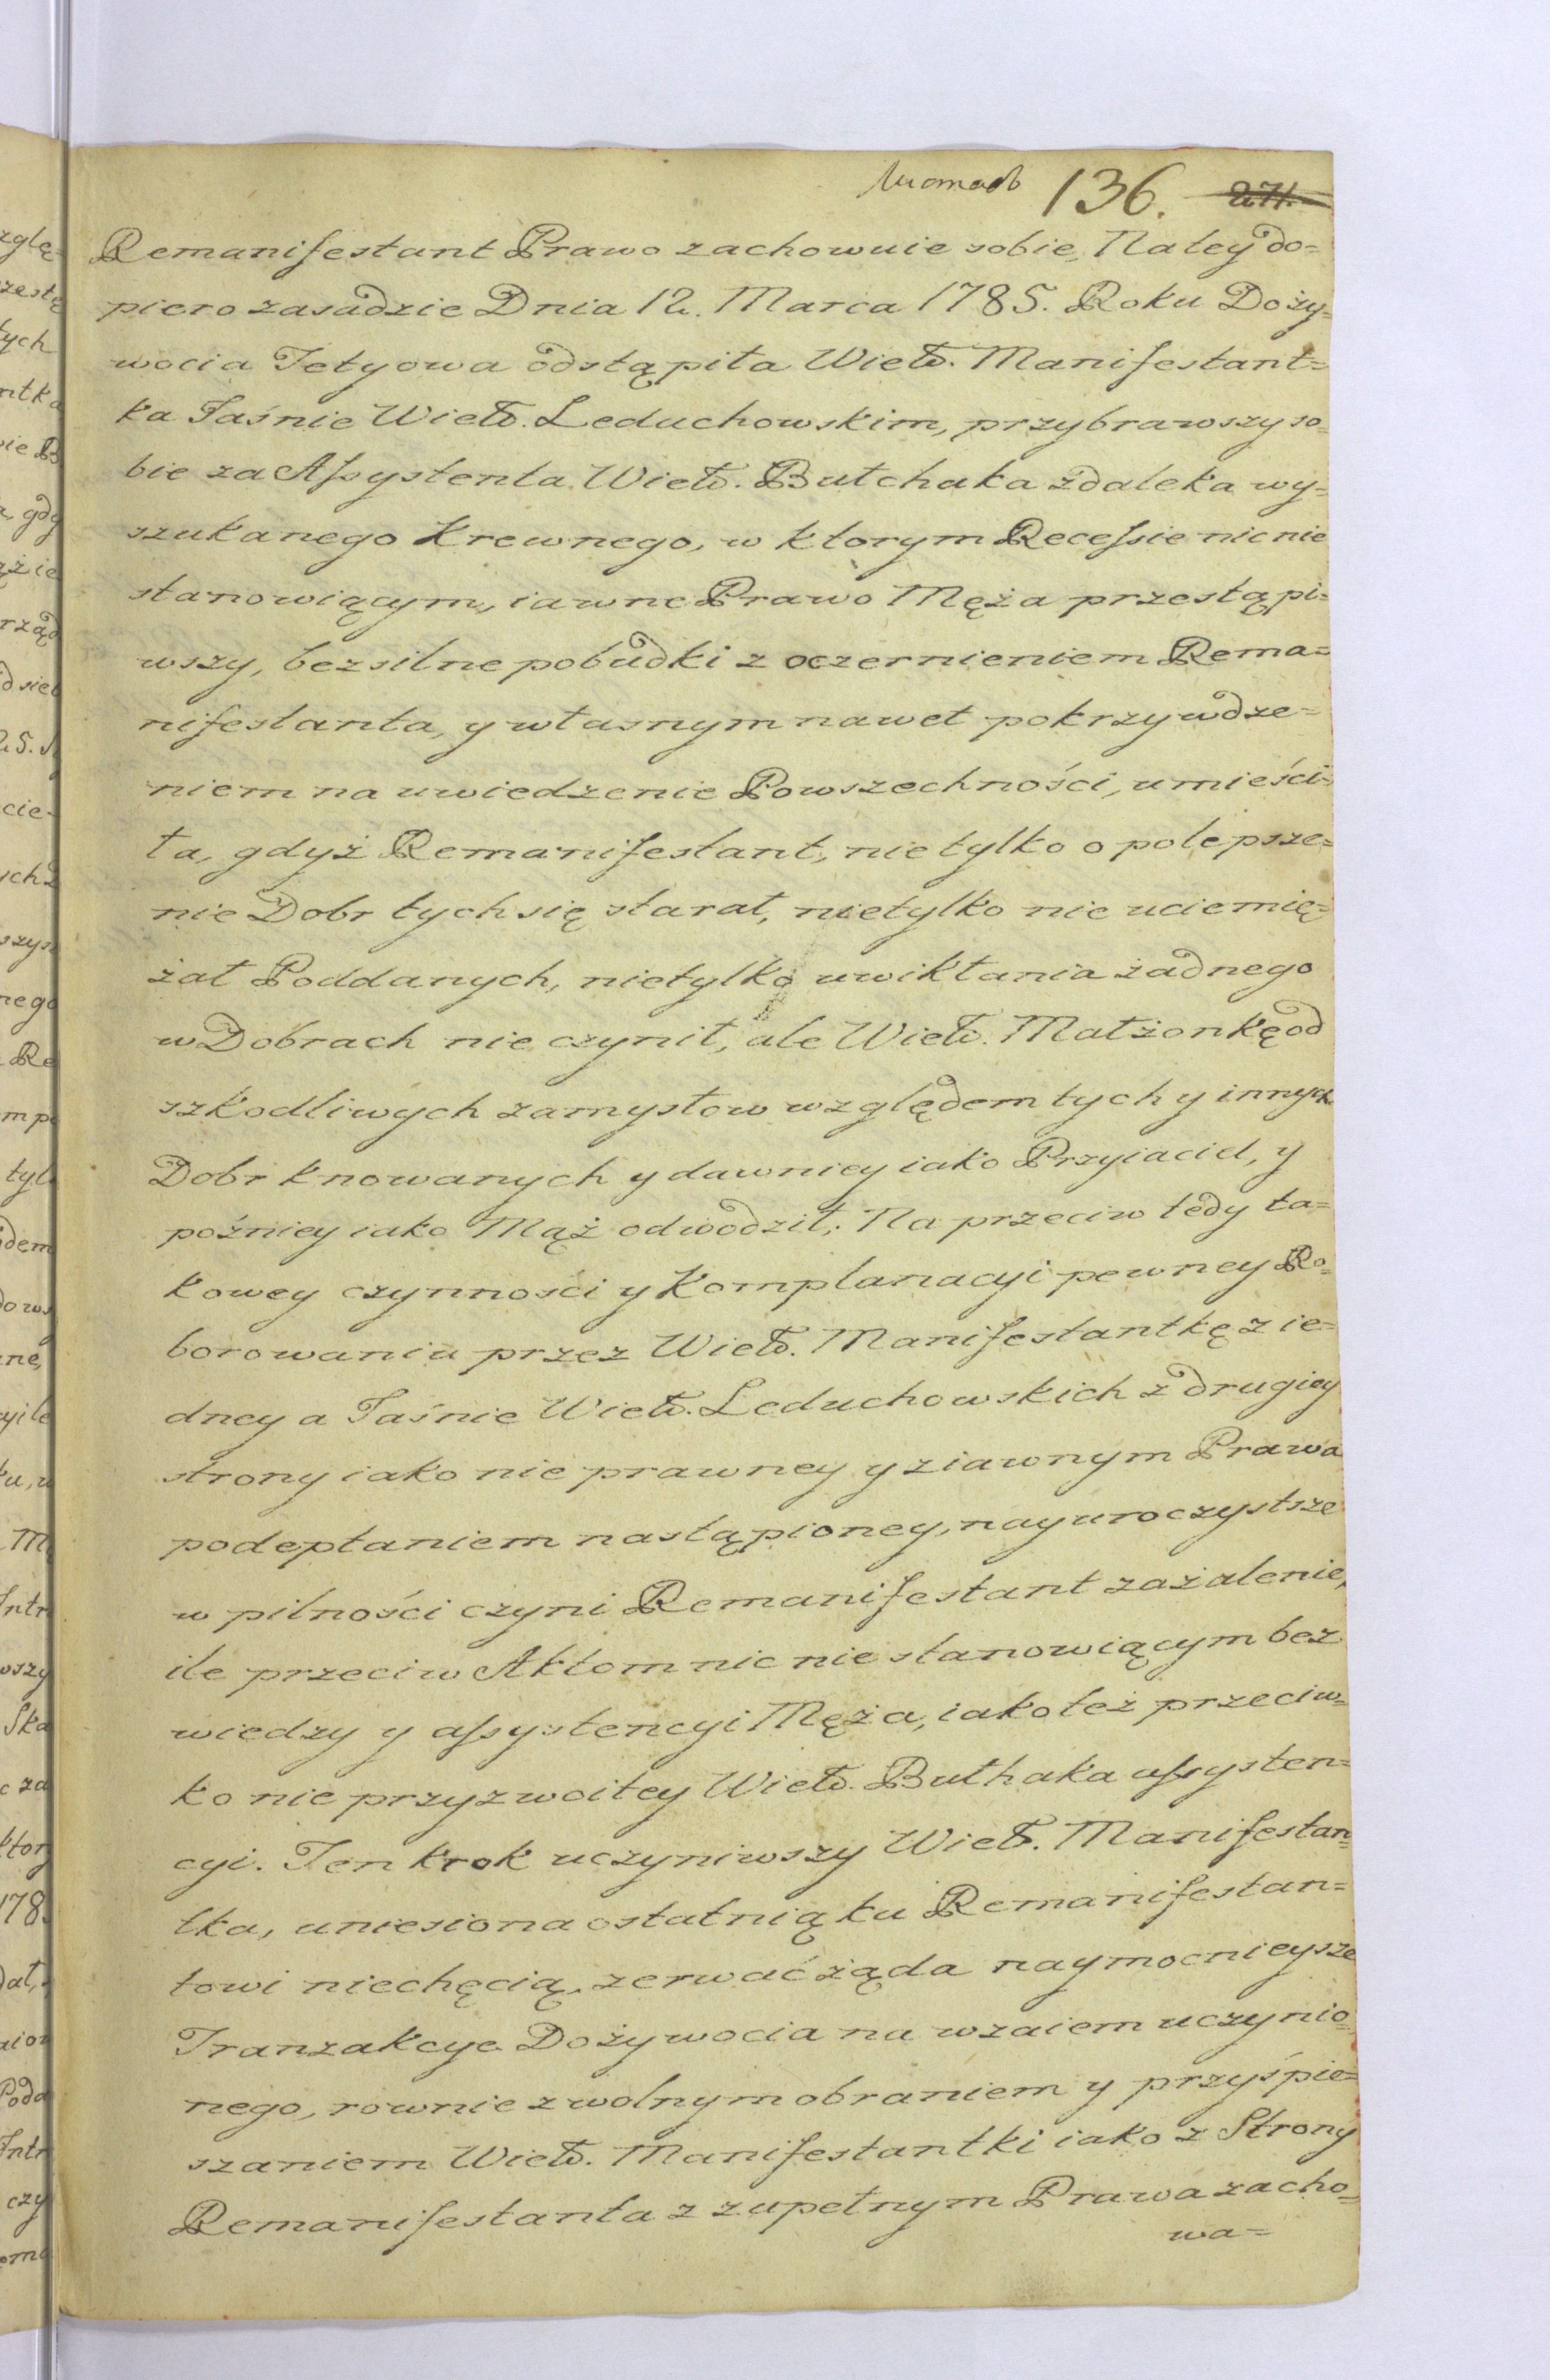 136. 271.
Remanifestant Prawo zachowuie sobie, Na tey do=
piero zasadzie Dnia 12. Marca 1785. Roku Doży=
wocia Tetyowa odstąpiła Wielo. Manifestant=
ka Jaśnie Wielo. Leduchowskim, przybrawszy so=
bie za Assystenta Wielo. Butchaka zdaleka wy=
szukanego Krewnego, w ktorym Recessie nic nie
stanowiącym, iawne Prawo Męża przestąpi=
wszy, bezsilne pobudki z oczernieniem Rema=
nifestanta, y własnym nawet pokrzywdze=
niem na uwiedzenie Powszechności, umieści=
ła, gdyż Remanifestant, nie tylko o polepsze=
nie Dobr tych się starał, nietylko nie uciemię=
żał Poddanych, nietylko uwikłania żadnego
w Dobrach nie czynił, ale Wielo. Małżonkę od
szkodliwych zamysłow względem tych y innych
Dobr knowanych y dawniey iako Przyiaciel, y
poźniey iako Mąż odwodził; Na przeciw tedy ta=
kowey czynności y Komplanacyi pewney Ro=
borowaniu przez Wielo. Manifestantkę z ie=
dney a Jaśnie Wielo. Leduchowskich z drugiey
strony iako nie prawney y z iawnym Prawa
podeptaniem nastąpioney, nayuroczystsze
w pilności czyni Remanifestant zażalenie,
ile przeciw Aktom nic nie stanowiącym bez
wiedzy y assystencyi Męża, iako też przeciw=
ko nie przyzwoitey Wielo. Buthaka assysten=
cyi. Ten krok uczyniwszy Wielo. Manifestan=
tka, uniesiona ostatnią ku Remanifestan=
towi niechęcią, zerwać żąda naymocnieysze
Tranzakcye Dożywocia na wzaiem uczynio=
nego, rownie z wolnym obraniem y przyśpie=
szaniem Wielo. Manifestantki iako z Strony
Remanifestanta z zupełnym Prawa zacho=
wa=